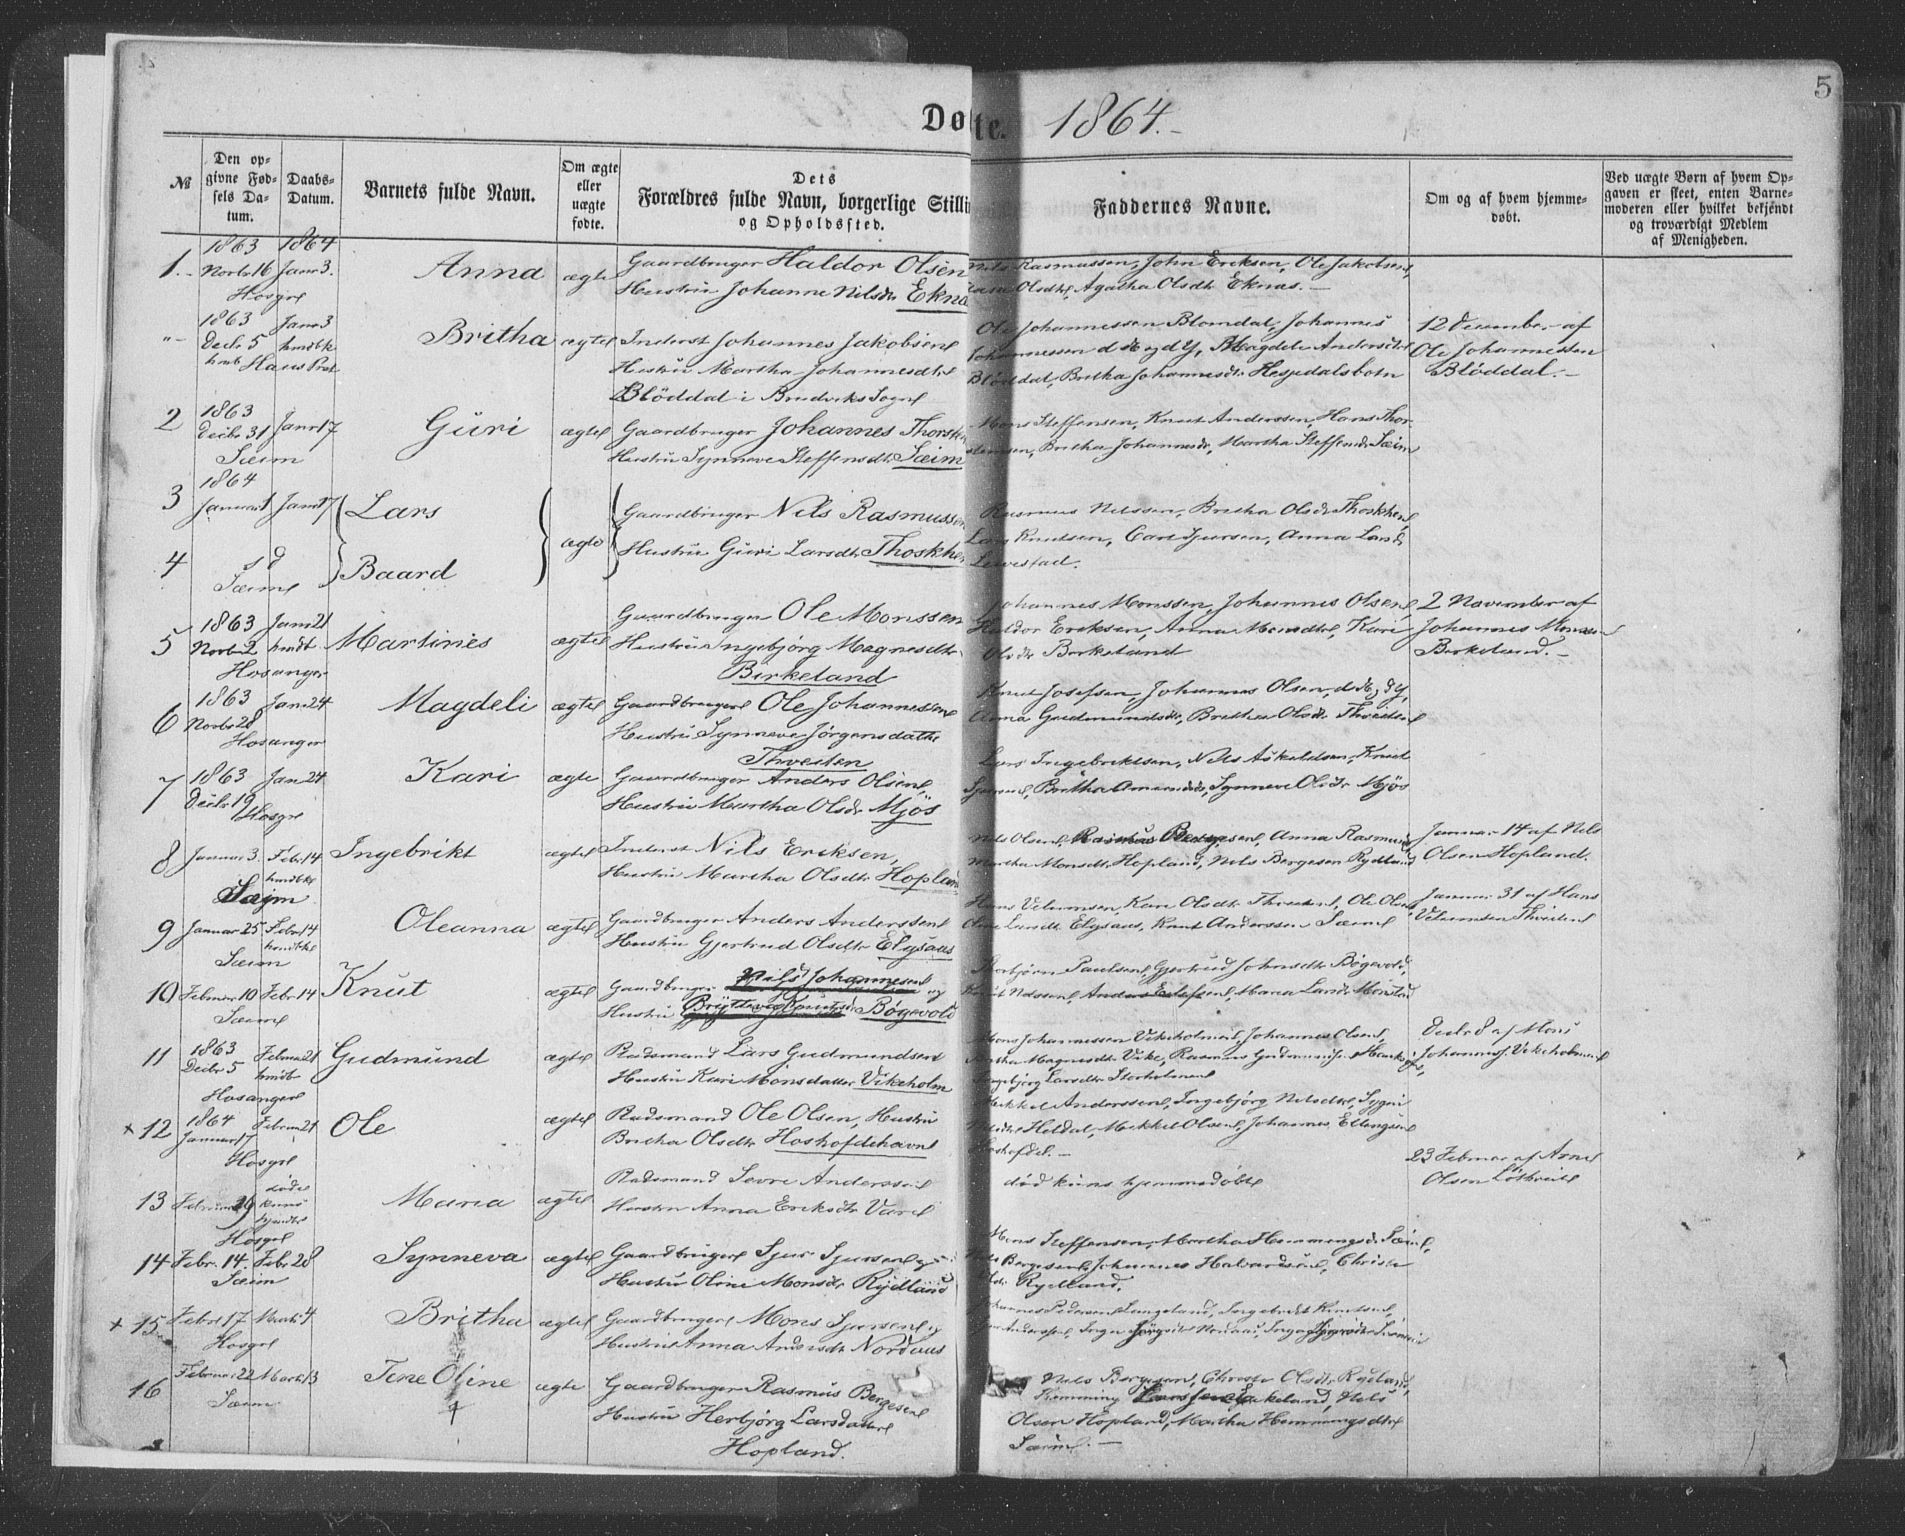 5
Døbte. 1864.-
№
Den opgivne Fødsels Datum.
Daabs-Datum.
Barnets fulde Navn.
Om ægte eller uægte fødte.
Dets Forældres fulde Navn, borgerlige Stilling og Opholdssted.
Faddernes Navne.
Om og af hvem hjemmedøbt.
Ved uægte Børn af hvem Opgaven er skeet, enten Barnemoderen eller hvilket bekjendt og troværdigt Medlem af Menigheden.
1.- 1863 Novbr 16 Hosgrl 1864 Januar 3. Anna ægte
Gaardbruger Haldor Olsen
Hustru Johanne Nilsdtr Eknæ
Nils Rasmussen, John Eriksen, Ole Jakobsen,
Olsdtr, Agatha Olsdtr Eknæs.-
"- 1863 Decbr 5 Janr 3 hmdbt Haus Prst Britha ægtel
Inderst Johannes Jakobsen
Hustru Martha Johannesdtr
Blöddal i Bruviks Sogn
Ole Johannessen Blomdal, Johannes
Johannessen d Æ og d Y, Magdele Andersdtr
Blöddal, Britha Johannesdtr Hespedalsbotn
12 December af
Ole Johannessen
Blöddal.-
2 1863 Decbr 31 Sæim Janr 17 Guri ægtel
Gaardbruger Johannes Thorst
Hustru Synneve Steffensdtr Sæim
Mons Steffensen, Knut Anderssen, Hans Thor-
stensen, Britha Johannesdr, Martha Steffensdr Sæim
3 1864 Januar 1 Janr 17 Lars
4 d Sæim Baard
ægte
Gaardbruger Nils Rasmussen
Hustru Guri Larsdtr Thoskhe
Rasmus Nilssen, Britha Olsdtr Thoskhei,
Lars Knudsen, Carl Sjursen, Anna Larsdr
5 1863 Novbr 2 Hosanger Janr 21 hmdt Martines ægtel
Gaardbruger Ole Monssen
Hustru Ingebjørg Magnesdtr
Birkeland
Johannes Monssen, Johannes Olsen,
Haldor Eriksen, Anna Monsdtr, Kari
Olsdtr Birkeland
2 November af
Johannes Monssen
Birkeland.-
6 1863 Novbr 28 Hosanger Jan 24 Magdeli ægtel
Gaardbruger Ole Johannessen
Hustru Synneve Jörgensdatter
Thveiten
Knut Josefsen, Johannes Olsen, d Æ og d Y,
Anna Gudmundsdtr, Britha Olsdtr Thveiten
7 1863 Decbr 19 Hosgrl Jan 24 Kari ægte
Gaardbruger Anders Olsen,
Hustru Martha Olsdr Mjös
Lars Ingebriktsen, Nils Askeldsen, Knud
Sjursen, Britha Amundsdr, Synneve Olsdtr Mjös
8 Januar 3. Sæim Febr 14 hmdbt Ingebrikt ægtel
Inderst Nils Eriksen,
Hustru Martha Olsdtr Hopland
Nils Olsen, Rasmus Bergesen, Anna Rasmusdr,
Martha Monsdtr Hopland, Nils Bergesen Rydland
Januar 14 af Nils
Olsen Hopland.
9 Januar 25 Sæim Febr 14 hmdbt Oleanna ægtel
Gaardbruger Anders Anderssen
Hustru Gjertrud Olsdtr Elysaas
Hans Velumsen, Kari Olsdtr Thveiten, Ole Olsen,
Oline Larsdtr Elysaas, Knut Anderssen Sæim
Januar 31 af Hans
Velumsen Thveiten
10 Februar 10 Sæim Febr 14 Knut ægtel
Gaardbruger Nils Johannessen og
Hustru Bøgevold
Thorbjørn Paulsen, Gjertrud Johnsdtr Bøgevold,
Knut Nilssen, Anders Eilefsen, Maria Larsdr Monstad
11 1863 Decbr 5 Hosanger Februar 21 hmdbt Gudmund ægtel
Pladsmand Lars Gudmundsen
Hustru Kari Monsdatter Vikeholm
Mons Johannessen Vikeholmen, Johannes Olsen,
Magnesdtr Vike, Rasmus Gudmundsen
Ingebjörg Larsdtr Storholmen
Decbr 8 af Mons
Johannesf. Vikeholmen
+ 12 1864 Januar 17 Hosgrl Februar 21 Ole ægtel
Pladsmand Ole Olsen, Hustru
Britha Olsdtr Hoshofdehavn
Mikkel Anderssen, Ingebjörg Nilsdtr, Sygni
Nilsdtr Heldal, Mikkel Olsen, Johannes Ellingsen
Hoshofdel.-
13 Februar Hosgrl døde kuns hjemdt Maria ægtel
Pladsmand Sevre Anderssen
Hustru Anna Eriksdtr
død kuns hjemmedøbt
23 Februar af Arne
Olsen Löthveit
14 Febr. 14. Sæim Febr 28 Synneva ægtel
Gaardbruger Sjur Sjursen og
Hustru Oline Monsdr Rydland
Mons Steffensen, Martha Hemmingsdr Sæim,
Nils Bergesen, Johannes Halvardsen, Christi
Rydland.
+ 15 Febr 17 Hosgrl Marts 4 Britha ægtel
Gaardbruger Mons Sjursen og
Hustru Anna Andersdtr Nordaas
Johannes Pedersen Langeland, Ingebrikt Knutsen,
16 Februar 22 Sæim Marts 13 Tene Oline ægte
Gaardbruger Rasmus Bergesen
Hustru Herbjörg Larsdatter
Hopland.
Nils Bergesen, Christi Olsdtr Rydland,
Hemming Larssen Nils
Olsen Hopland, Martha Hemmingsdtr
Sæim.-